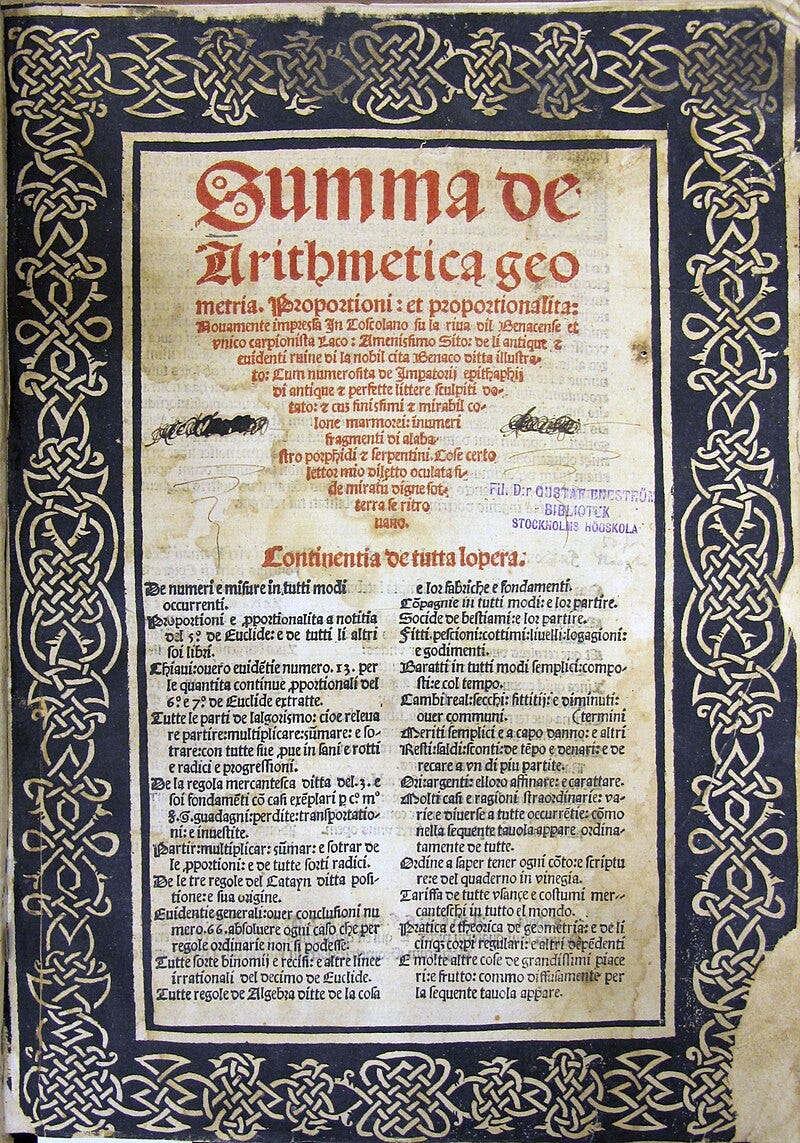 Summa de
Arithmetica geo
metria. Proportioni: et proportionalita:
Nouamente impressa In Toscolano su la riua dil Benacense et
vnico carpionista Laco: Amenissimo Sito: de li antique &
euidenti ruine di la nobil cita Benaco ditta illustra-
to: Cum numerosita de Impatorij epithaphij
di antique & perfette littere sculpiti do-
tato: & cus finissimi & mirabil co-
lone marmorei: inumeri
fragmenti di alaba-
stro porphidi & serpentini. Cose certo
lettor mio diletto oculata fi-
de miratu digne sot-
terra se ritro
uano.
Fil. D:r GUSTAF ENESTRÖM
BIBLIOTEK
STOCKHOLMS HÖGSKOLA
Continentia de tutta lopera.
De numeri e misure in tutti modi
occurrenti.
Proportioni e ꝓportionalita a notitia
del 5º de Euclide: e de tutti li altri
soi libri.
Chiaui: ouero euidẽtie numero .13. per
le quantita continue ꝓportionali del
6º e 7º de Euclide extratte.
Tutte le parti de lalgorismo: cioe releua
re partire: multiplicare: sũmare: e so-
trare: con tutte sue ꝓue in sani e rotti
e radici e progressioni.
De la regola mercantesca ditta del .3. e
soi fondamẽti cõ casi exẽplari ꝑ cº mº
8. G. guadagni: perdite: transportatio-
ni: e inuestite.
Partir: multiplicar: sũmar: e sotrar de
le ꝓportioni: e de tutte sorti radici.
De le tre regole del Catayn ditta posi-
tione: e sua origine.
Euidentie generali: ouer conclusioni nu
mero .66. absoluere ogni caso che per
regole ordinarie non si podesse.
Tutte sorte binomij e recisi: e altre linee
irrationali del decimo de Euclide.
Tutte regole de Algebra ditte de la cosa
e lor fabriche e fondamenti.
Cõpagnie in tutti modi: e lor partire.
Socide de bestiami: e lor partire.
Fitti: pescioni: cottimi: liuelli: logagioni:
e godimenti.
Baratti in tutti modi semplici: compo-
sti: e col tempo.
Cambi reali: secchi: fittitij: e diminuti:
ouer communi. (termini
Meriti semplici e a capo danno: e altri
Resti: saldi: sconti: de tẽpo e denari: e de
recare a vn di piu partite.
Ori: argenti: e lloro affinare: e carattare.
Molti casi e ragioni straordinarie: va-
rie e diuerse a tutte occurrẽtie: cõmo
nella sequente tauola appare ordina-
tamente de tutte.
Ordine a saper tener ogni cõto: e scriptu
re: e del quaderno in vinegia.
Tariffa de tutte vsançe e costumi mer-
canteschi in tutto el mondo.
Pratica e theorica de geometria: e de li
cinqꝫ corpi regulari: e altri depẽdenti
E molte altre cose de grandissimi piace
ri: e frutto: commo diffusamente per
la sequente tauola appare.